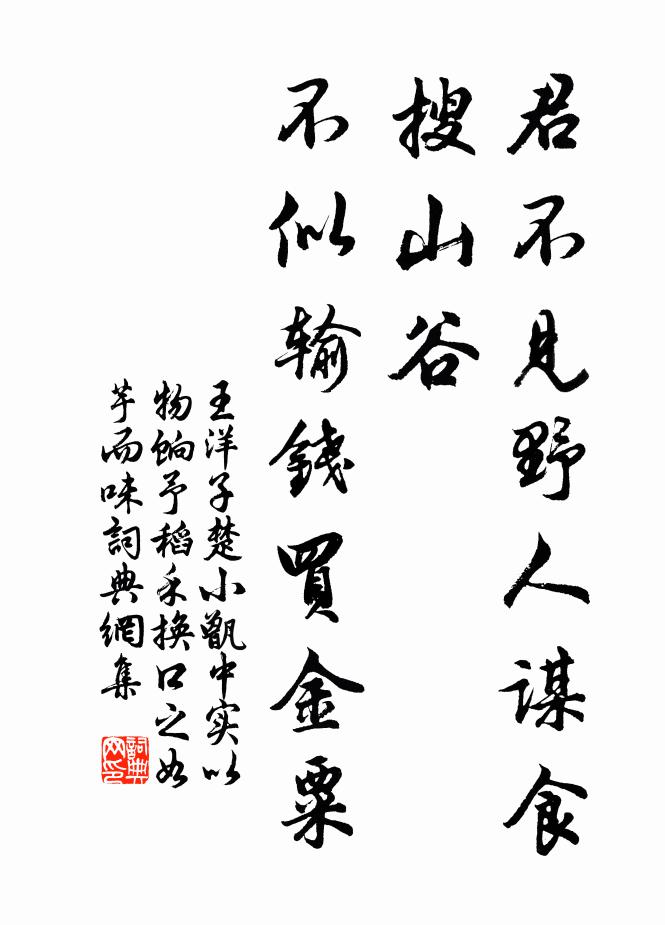 君不見野人謀食
搜山谷
不似輸錢買金粟
王洋子楚小甑中实以
物餉予稻禾換口之如
芋而味詞典網集
詞典
网印